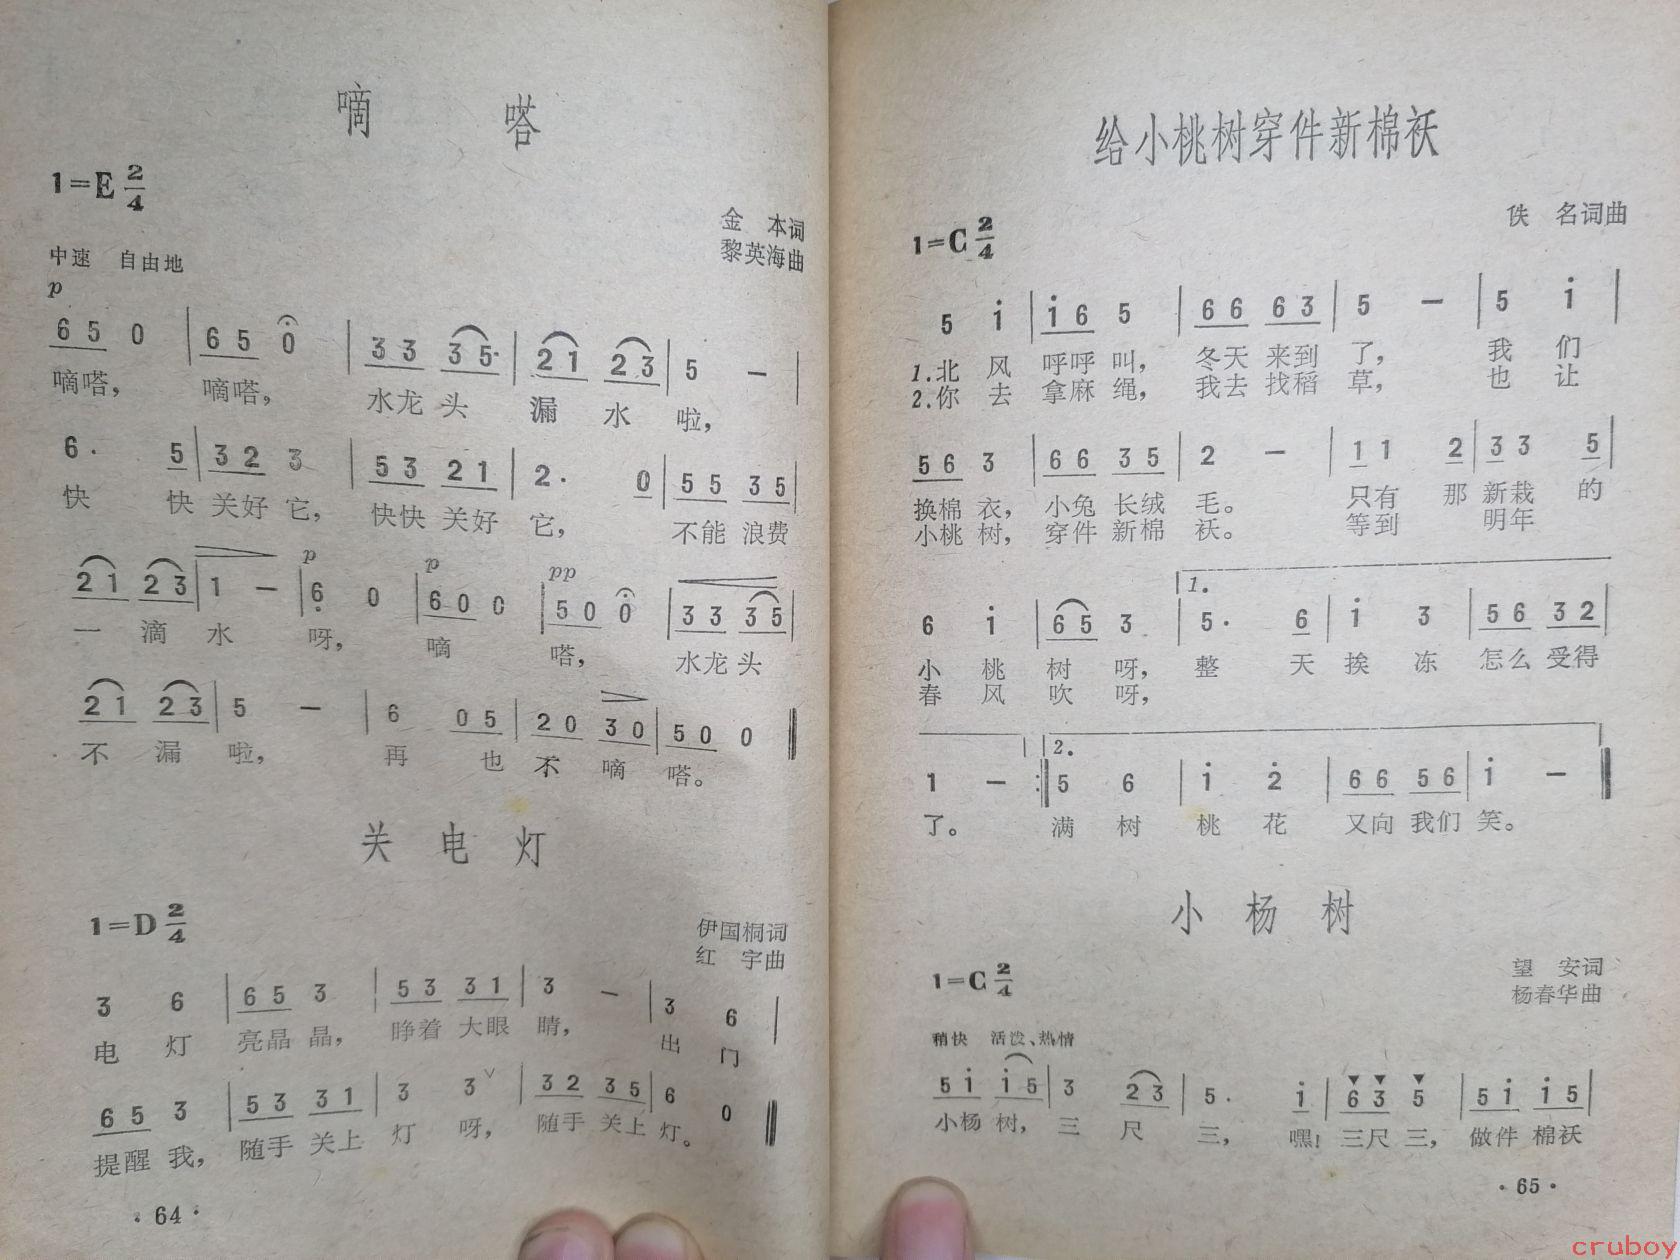 嘀 嗒
1=E 2/4
金 本词
黎英海曲
中速 自由地
p
6 5 0 | 6 5 0 | 3 3 3 5· | 2 1 2 3 | 5 — |
嘀嗒， 嘀嗒， 水龙头 漏 水 啦，
6· 5 | 3 2 3 | 5 3 2 1 | 2· 0 | 5 5 3 5 |
快 快 关好 它， 快快 关好 它， 不能 浪费
p p pp
2 1 2 3 | 1 — | 6̣ 0 | 6 0 0 | 5 0 0 | 3 3 3 5 |
一 滴 水 呀， 嘀 嗒， 水龙头
2 1 2 3 | 5 — | 6 0 5 | 2 0 3 0 | 5 0 0 ‖
不 漏 啦， 再 也 不 嘀 嗒。
关 电 灯
1=D 2/4
伊国桐词
红 宇曲
3 6 | 6 5 3 | 5 3 3 1 | 3 — | 3 6 |
电 灯 亮晶 晶， 睁着 大眼 睛， 出 门
6 5 3 | 5 3 3 1 | 3 3 ∨ | 3 2 3 5 | 6 0 ‖
提醒 我， 随手 关上 灯 呀， 随手 关上 灯。
· 64 ·
给小桃树穿件新棉袄
佚 名词曲
1=C 2/4
5 i̇ | i̇ 6 5 | 6 6 6 3 | 5 — | 5 i̇ |
1.北 风 呼呼 叫， 冬天 来到 了， 我 们
2.你 去 拿麻 绳， 我去 找稻 草， 也 让
5 6 3 | 6 6 3 5 | 2 — | 1 1 2 | 3 3 5 |
换棉 衣， 小兔 长绒 毛。 只有 那 新栽 的
小桃 树， 穿件 新棉 袄。 等到 明年
1.
6 i̇ | 6 5 3 | 5· 6 | i̇ 3 | 5 6 3 2 |
小 桃 树 呀， 整 天 挨 冻 怎么 受得
春 风 吹 呀，
2.
1 — :‖ 5 6 | i̇ 2̇ | 6 6 5 6 | i̇ — ‖
了。 满 树 桃 花 又向 我们 笑。
小 杨 树
1=C 2/4
望 安词
杨春华曲
稍快 活泼、热情
5 i̇ i̇ 5 | 3 2 3 | 5· i̇ | 6 3 5 | 5 i̇ i̇ 5 |
小杨 树， 三 尺 三， 嘿! 三尺 三， 做件 棉袄
· 65 ·
cruboy